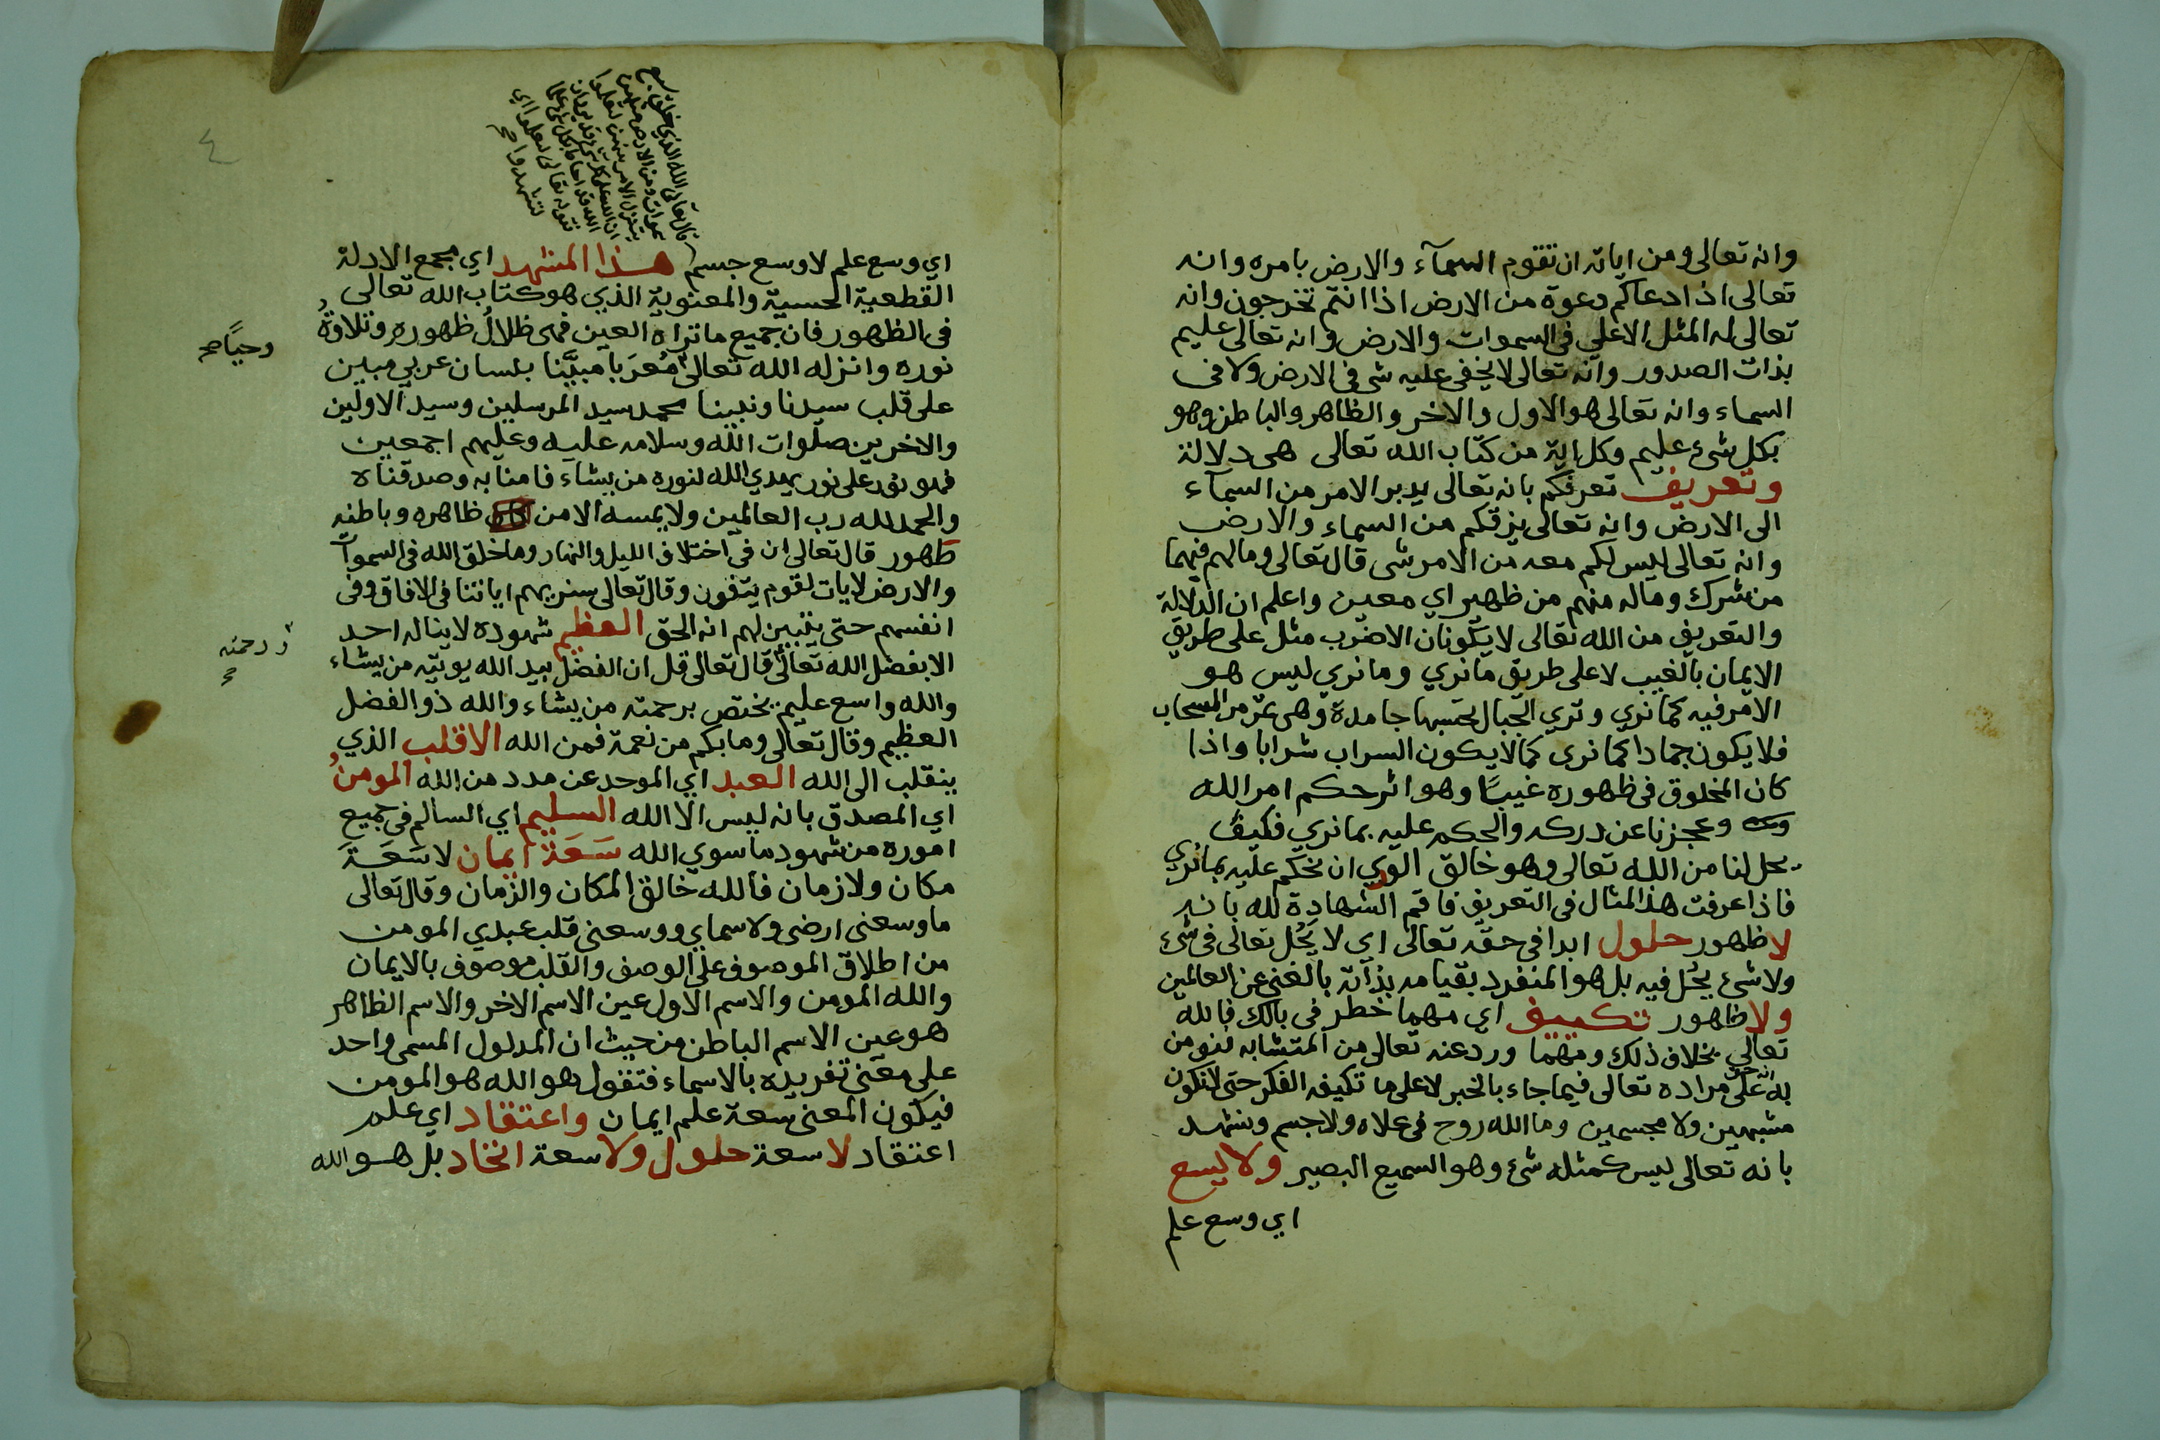 وانه تعالى ومن اياته ان تقوم السمآء والارض بامره وانه
تعالى اذا دعاكم دعوة من الارض اذا انتم تخرجون وانه
تعالى له المثل الاعلى في السموات والارض وانه تعالى عليم
بذات الصدور وانه تعالى لا يخفى عليه شي في الارض ولا في
السماء وانه تعالى هو الاول والاخر والظاهر والباطن وهو
بكل شئ عليم وكل اية من كتاب الله تعالى هي دلالة
وتعريف تعرفكم بانه تعالى يدبر الامر من السمآء
الى الارض وانه تعالى يرزقكم من السماء والارض
وانه تعالى ليس لكم معه من الامر شي قال تعالى وما لهم فيهما
من شرك وماله منهم من ظهير اي معين واعلم ان الدلالة
والتعريف من الله تعالى لا يكونان الا ضرب مثل على طريق
الايمان بالغيب لا على طريق ما نري وما نري ليس هو
الامر فيه كما نري وتري الجبال تحسبها جامدة وهي تمر مر السحاب
فلا يكون جمادا كما نرى كما لا يكون السراب شرابا واذا
كان المخلوق في ظهوره غيبا وهو اثر حكم امر الله
وعجزنا عن دركه والحكم عليه بما نري فكيف
يحل لنا من الله تعالى وهو خالق الوري ان نحكم عليه بما نري
فاذا عرفت هذا المثال في التعريف فاقم الشهادة لله بانه
لا ظهور حلول ابدا في حقه تعالى اي لا يحُل تعالى في شئ
ولا شئ يحُل فيه بل هو المنفرد بقيامه بذاته بالغنى عن العالمين
ولا ظهور تكييف اي مهما خطر في بالك فالله
تعالي بخلاف ذلك ومهما ورد عنه تعالى من المتشابه نؤمن
به على مراده تعالى فيما جاء بالخبر لا على ما تكيفه الفكر حتى لا نكون
مشبهين ولا مجسمين وما الله روح في علاه ولا جسم ونشهد
بانه تعالى ليس كمثله شئ وهو السميع البصير ولا يسع
اي وسع علم
قال تعالى الله الذي خلق سبع
سموات ومن الارض مثلهن
يتنزل الامر بينهن لتعلموا
ان الله على كل شي قدير وان
الله قد احاط بكل شي علما
فقوله تعالى لتعلموا اي
لتشهدوا صح
اي وسع علم لا وسع جسم هذا المشهد اي مجمع الادلة
القطعية الحسية والمعنوية الذي هو كتاب الله تعالى
في الظهور فان جميع ما تراه العين فهى ظلالُ ظهوره وتلاوةُ
نوره وانزله الله تعالى مُعرَبا مبيَّنا بلسان عربي مبين
وحيًا صح
على قلب سيدنا ونبينا محمد سيد المرسلين وسيد الاولين
والاخرين صلوات الله وسلامه عليه وعليهم اجمعين
فهو نور على نور يهدي الله لنوره من يشاء فامنا به وصدقناه
والحمد لله رب العالمين ولا يمسه الا من ظاهره وباطنه
طهور قال تعالى ان في اختلاف الليل والنهار وما خلق الله في السموات
والارض لايات لقوم يتقون وقال تعالى سنريهم اياتنا في الافاق وفي
انفسهم حتى يتبين لهم انه الحق العظيم شهوده لا يناله احد
الا بفضل الله تعالى قال تعالى قل ان الفضل بيد الله يوتيه من يشاء
ورحمته صح
والله واسع عليم يختص برحمته من يشاء والله ذو الفضل
العظيم وقال تعالى وما بكم من نعمة فمن الله الا قلب الذي
ينقلب الى الله العبد اي الموحد عن مدد من الله المومنُ
اي المصدق بانه ليس الا الله السليم اي السالم في جميع
اموره من شهود ما سوي الله سَعَة ايمان لا سَعَةَ
مكان ولا زمان فالله خالق المكان والزمان وقال تعالى
ما وسعني ارضي ولا سماي ووسعني قلب عبدي المومن
من اطلاق الموصوف على الوصف والقلب موصوف بالايمان
والله المومن والاسم الاول عين الاسم الاخر والاسم الظاهر
هو عين الاسم الباطن من حيث ان المدلول المسمى واحد
على معنى تفريده بالاسماء فتقول هو الله هو المومن
فيكون المعنى سعة علم ايمان واعتقاد اي علم
اعتقاد لا سعة حلول ولا سعة اتحاد بل هو الله